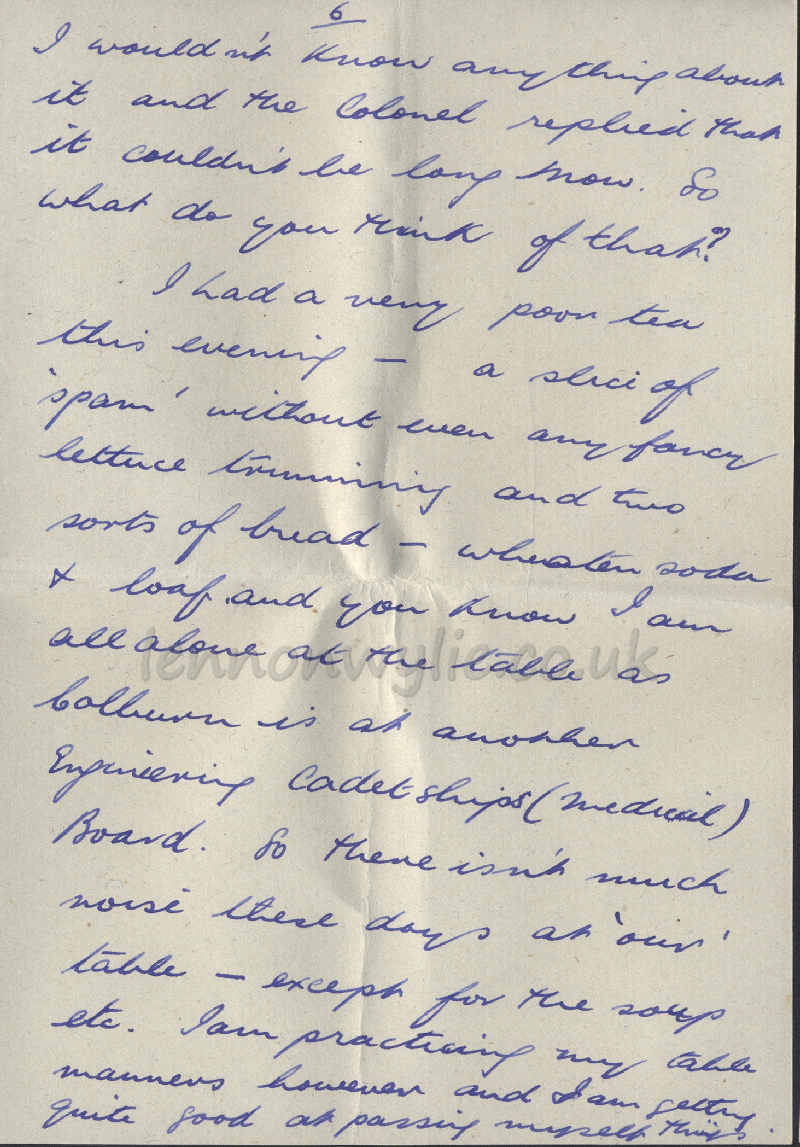 6
I wouldn't know anything about
it and the Colonel replied that
it couldn't be long now. So
what do you think of that?
I had a very poor tea
this evening — a slice of
'spam' without even any fancy
lettuce trimming and two
sorts of bread — wheaten soda
& loaf. and you know I am
all alone at the table as
Colburn is at another
Engineering Cadetships (Medical)
Board. So there isn't much
noise these days at 'our'
table — except for the soup
etc. I am practicing my table
manners however and I am getting
quite good at passing myself things.
lennonwylie.co.uk